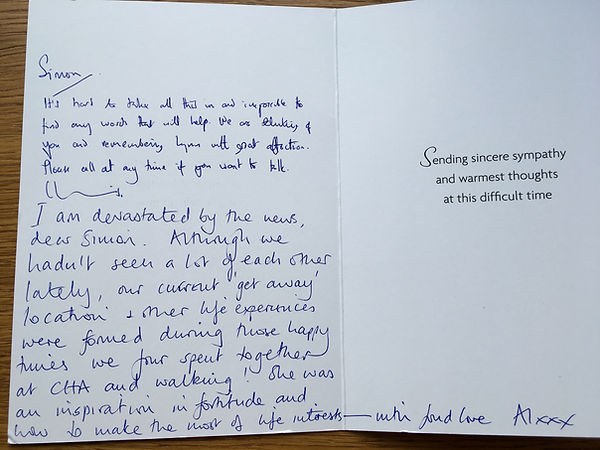 Simon,
It's hard to take all this in and impossible to
find any words that will help. We are thinking of
you and remembering Lynn with great affection.
Please call at any time if you want to talk.
I am devastated by the news,
dear Simon. Although we
hadn't seen a lot of each other
lately, our current 'get away'
location & other life experiences
were formed during those happy
times we four spent together
at CHA and walking! She was
an inspiration in fortitude and
how to make the most of life interests — with fond love Al xxx
Sending sincere sympathy
and warmest thoughts
at this difficult time